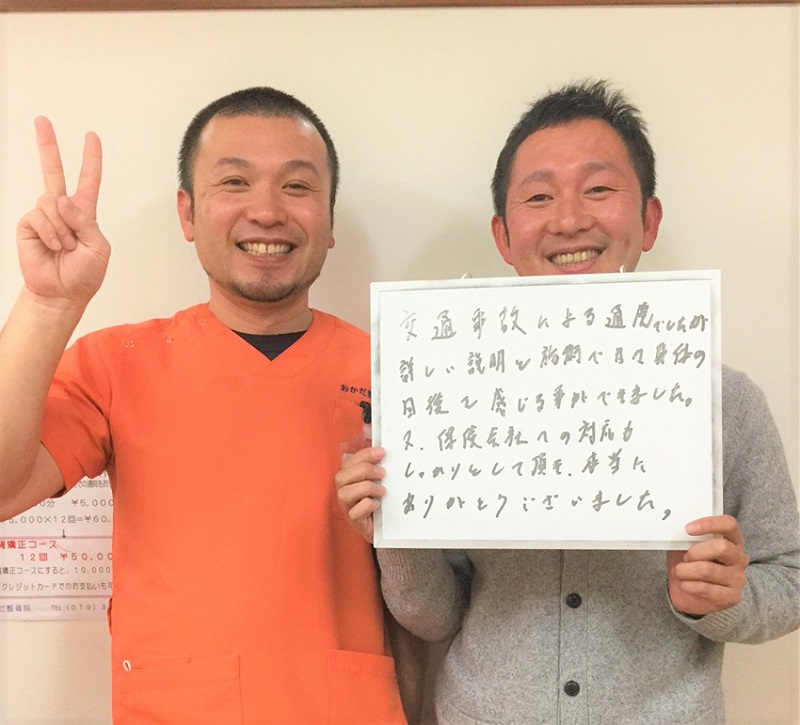 交通事故による通院でしたが
詳しい説明と施術で日々身体の
回復を感じる事ができました。
又、保険会社への対応も
しっかりとして頂き、本当に
ありがとうございました。
おかだ整
での通院をお
0分 ¥5,000
¥5,000×12回=¥60,
矯正コース
12回 ¥50,00
矯正コースにすると、10,000
クレジットカードでのお支払いも可
だ整骨院 TEL(079)